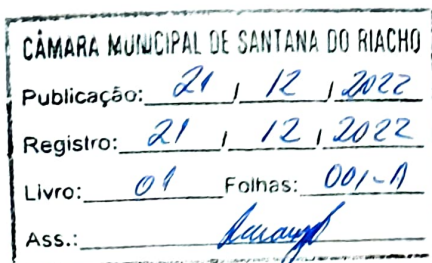 CÂMARA MUNICIPAL DE SANTANA DO RIACHO
Publicação: 21 / 12 / 2022
Registro: 21 / 12 / 2022
Livro: 01 Folhas: 001-A
Ass.: